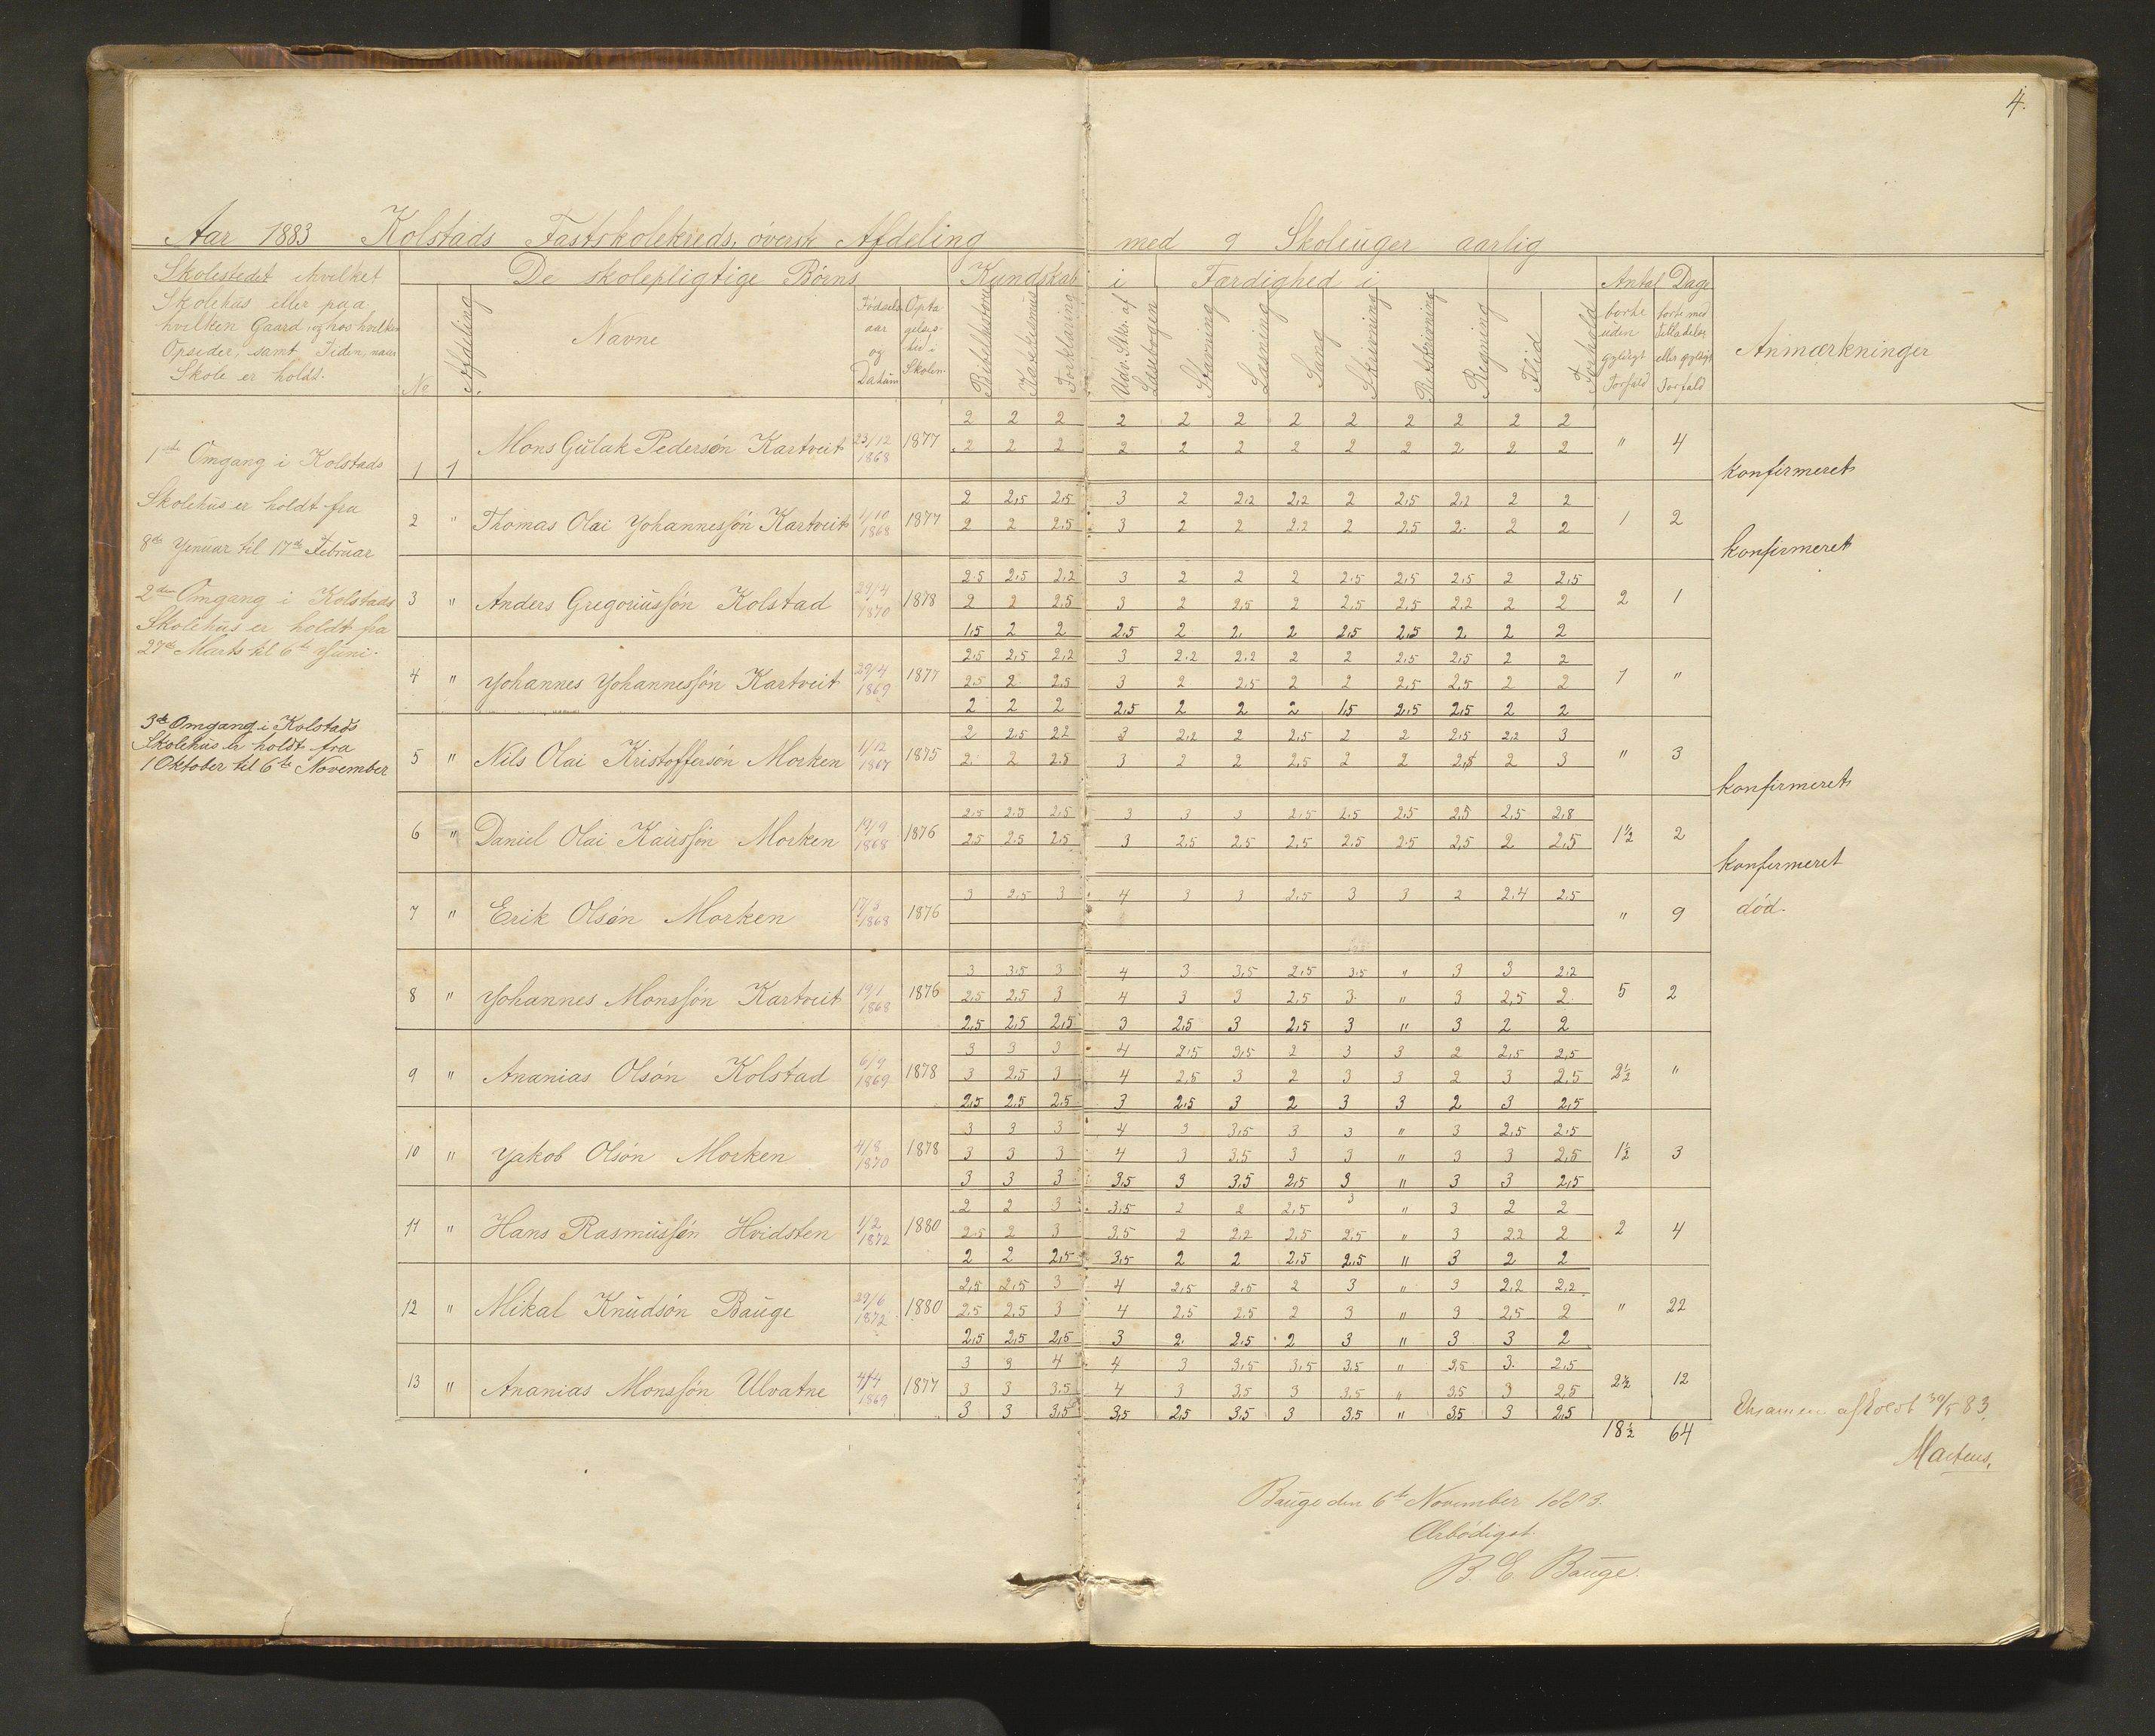 4.
Aar 1883 Kolstads Fastskolekreds, øverste Afdeling med 9 Skoleuger aarlig
Skolestedet i hvilket
Skolehus eller paa
hvilken Gaard, og hos hvilken
Opsider, samt Tiden, naar
Skole er holdt.
No
Afdeling.
De skolepligtige Børns
Navne
Fødsels-
aar
og
Datum
Opta
gelses-
tid i
Skolen.
Kundskab i
Bibelhistorie
Katekismus
Forklaring
Udv. Stkr. af
Læsebogen
Færdighed i
Stavning
Læsning
Sang
Skrivning
Retskrivning
Regning
Flid
Forhold
Antal Dage
borte
uden
gyldigt
Forfald
borte med
Tilladelse
eller gyldigt
Forfald
Anmærkninger
1ste Omgang i Kolstads
Skolehus er holdt fra
8de Januar til 17de Februar
2den Omgang i Kolstads
Skolehus er holdt fra
27de Marts til 6te Juni.
3de Omgang i Kolstads
Skolehus er holdt fra
1 Oktober til 6te November
2 2 2 2 2 2 2 2 2 2 2 2
1 1 Mons Gulak Pedersøn Kartveit 23/12 1868 1877 2 2 2 2 2 2 2 2 2 2 2 2 " 4 konfirmeret
2 2,5 2,5 3 2 2,2 2,2 2 2,5 2,2 2 2
2 " Thomas Olai Johannessøn Kartveit 1/10 1868 1877 2 2 2,5 3 2 2 2,2 2 2,5 2 2 2 1 2 konfirmeret
2,5 2,5 2,2 3 2 2 2 2,5 2,5 2,5 2 2,5
3 " Anders Gregoriussøn Kolstad 29/4 1870 1878 2 2 2,5 3 2 2,5 2 2,5 2,5 2,2 2 2 2 1
1,5 2 2 2,5 2 2 2 2,5 2,5 2 2 2
2,5 2,5 2,2 3 2,2 2,2 2 2 2,5 2,5 2 2
4 " Johannes Johannessøn Kartveit 29/4 1869 1877 2,5 2 2,5 3 2 2,5 2 2 2,5 2,5 2 2 1 "
2 2 2 2,5 2 2 2 1,5 2,5 2,5 2 2
2 2,5 2,2 3 2,2 2 2,5 2 2 2,5 2,2 3
5 " Nils Olai Kristoffersøn Morken 1/12 1867 1875 2 2 2,5 3 2 2 2,5 2 2 2,5 2 3 " 3 konfirmeret
2,5 2,5 2,5 3 3 3 2,5 2,5 2,5 2,5 2,5 2,8
6 " Daniel Olai Kaussøn Morken 19/9 1868 1876 2,5 2,5 2,5 3 2,5 2,5 2,5 2,5 2,5 2,5 2 2,5 1½ 2 konfirmeret
3 2,5 3 4 3 3 2,5 3 3 2 2,4 2,5
7 " Erik Olsøn Morken 1868 1876 " 9 død.
3 3,5 3 4 3 3,5 2,5 3,5 " 3 3 2,2
8 " Johannes Monssøn Kartveit 19/1 1868 1876 2,5 2,5 3 4 3 3 2,5 3 " 3 2,5 2 5 2
2,5 2,5 2,5 3 2,5 3 2,5 3 " 3 2 2
3 3 3 4 2,5 3,5 2 3 3 2 2,5 2,5
9 " Ananias Olsøn Kolstad 6/9 1869 1878 3 2,5 3 4 2,5 3 2 3 3 2 3 2,5 2½ "
2,5 2,5 2,5 3 2,5 3 2 3 3 2 3 2,5
3 3 3 4 3 3,5 3 3 " 3 2,5 2,5
10 " Jakob Olsøn Morken 4/8 1870 1878 3 3 3 4 3 3,5 3 3 " 3 3 2,5 1½ 3
3 3 3 3,5 3 3,5 2,5 3 " 3 3 2,5
2 2 3 3,5 2 2 2,5 3 " 3 2 2
11 " Hans Rasmussøn Hvidsten 1/2 1872 1880 2,5 2 3 3,5 2 2,2 2,5 2,5 " 3 2,2 2 2 4
2 2 2,5 3,5 2 2 2,5 2,5 " 3 2 2
2,5 2,5 3 4 2,5 2,5 2 3 " 3 2,2 2,2
12 " Mikal Knudsøn Bauge 29/6 1872 1880 2,5 2,5 3 4 2,5 2,5 2 3 " 3 2,5 2 " 22
2,5 2,5 2,5 3 2 2,5 2 3 " 3 3 2
3 3 4 4 3 3,5 3,5 3,5 " 3,5 3 2,5
13 " Ananias Monssøn Ulvatne 4/4 1869 1877 3 3 3,5 4 3 3,5 3 3,5 " 3,5 3 2,5 2½ 12
3 3 3,5 3,5 2,5 3,5 3 3,5 " 3,5 3 2,5
18½ 64
Examen afholdt 30/5 83.
Martens.
Bauge den 6te November 1883.
Ærbødigst
B. E. Bauge.